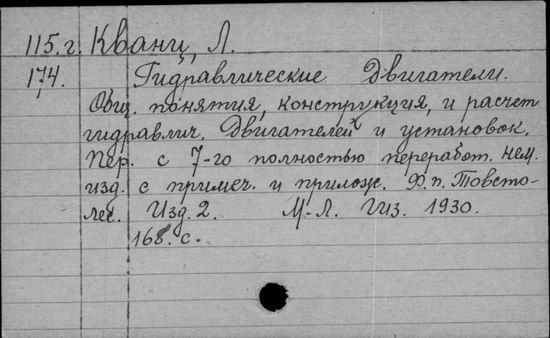 115.г. Кванц, Л.
174. Гидравлические Двигатели.
Общ. понятия, конструкция, и расчет
гидравлич. Двигателей и установок.
Пер. с 7-го полностью переработ. нем.
изд. с примеч. и прилож. Ф.п. Товсто-
лес. Изд. 2. М.-Л. Гиз. 1930.
168. с.